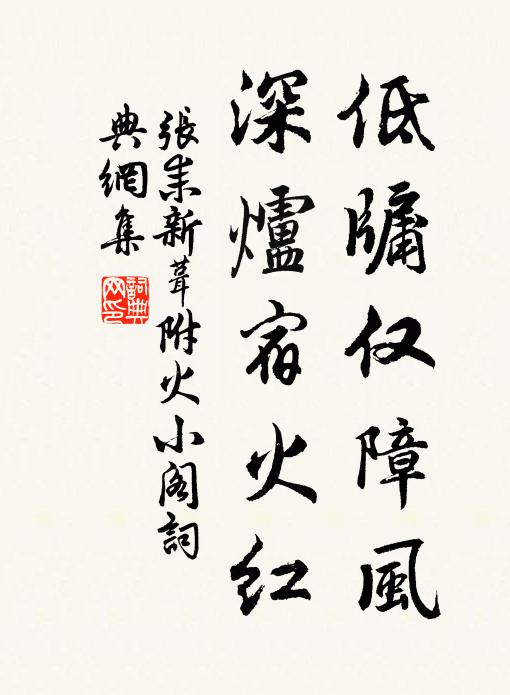 低牗仅障風
深爐宿火紅
張耒新葺附火小閣詞
典網集
詞典
网印